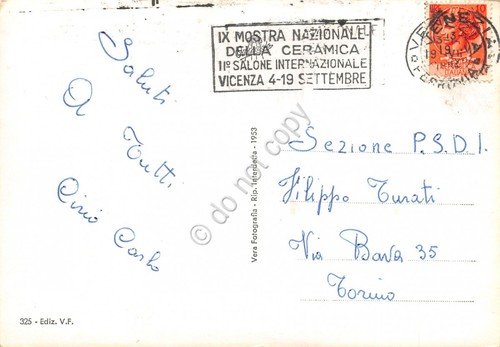 IX MOSTRA NAZIONALE
DELLA CERAMICA
IIº SALONE INTERNAZIONALE
VICENZA 4-19 SETTEMBRE
VENEZIA
FERROVIA
Saluti
A Tutti
Carlo
Vera Fotografia - Rip. Interdetta - 1953
Sezione P.S.D.I.
Filippo Turati
Via Bava 35
Torino
325 - Ediz. V.F.
© do not copy